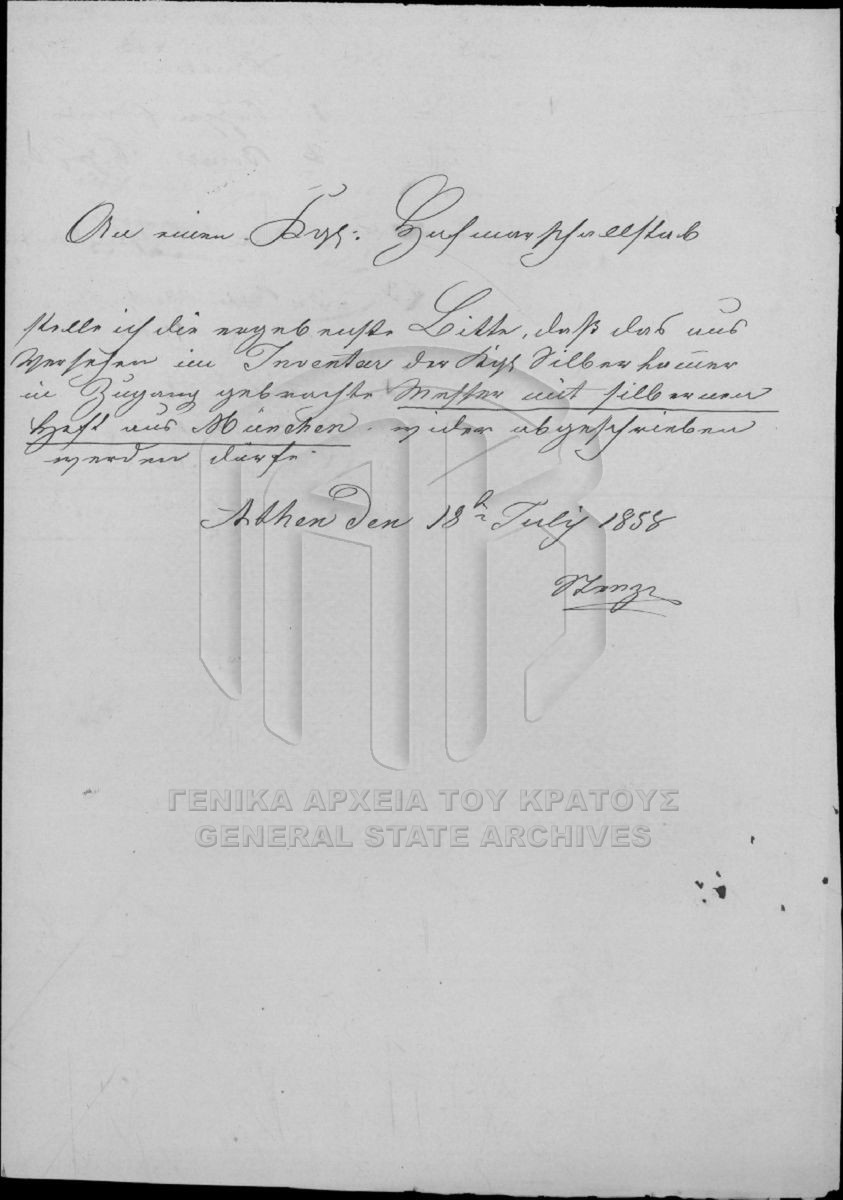 An einen Kgl: Hofmarschallstab
stelle ich die ergebenste Bitte, daß das aus
Versehen im Inventar der Kgl Silberkam̄er
in Zugang gebrachte Messer mit silbernen
Heft aus München wider abgeschrieben
werden dürfe.
Athen den 18t July 1858
ΓΕΝΙΚΑ ΑΡΧΕΙΑ ΤΟΥ ΚΡΑΤΟΥΣ
GENERAL STATE ARCHIVES